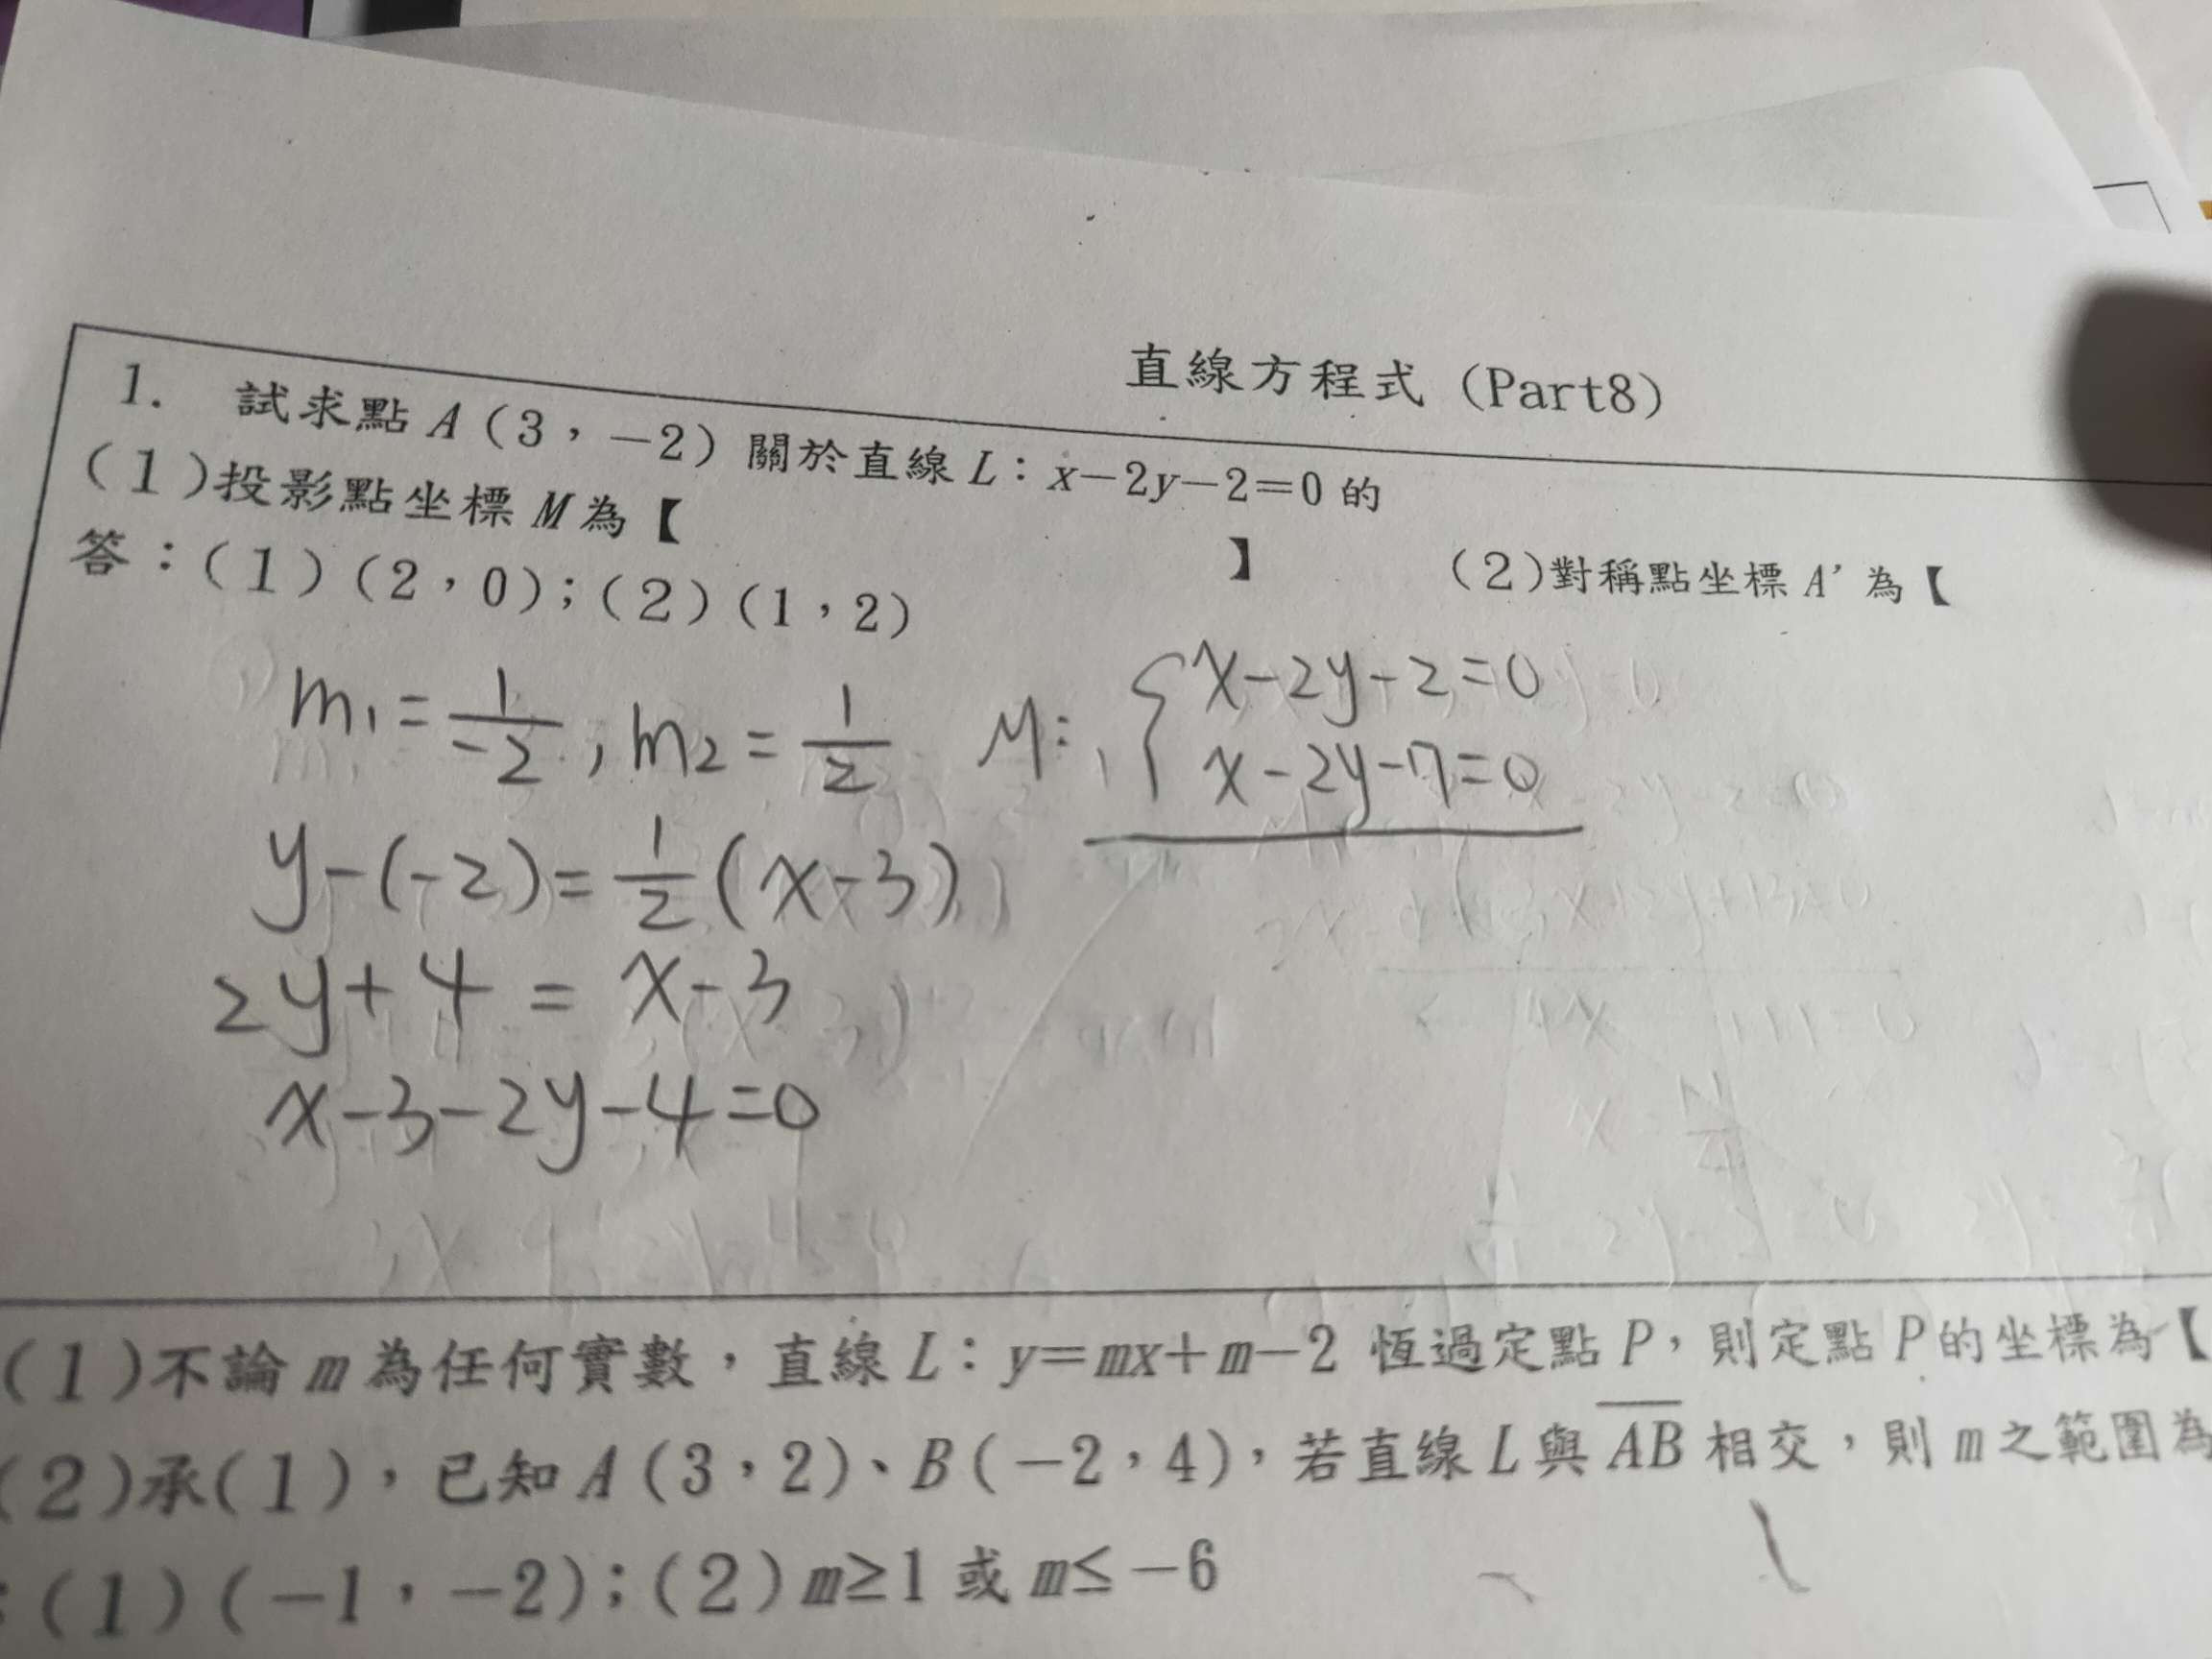 直線方程式 (Part8)
1. 試求點 A (3,-2) 關於直線 L:x-2y-2=0 的
(1)投影點坐標 M 為【 】 (2)對稱點坐標 A' 為【
答:(1)(2,0);(2)(1,2)
m₁=1/-2, m₂=1/2
M: { x-2y-2=0
x-2y-7=0
y-(-2)=1/2(x-3)
2y+4=x-3
x-3-2y-4=0
(1)不論 m 為任何實數,直線 L:y=mx+m-2 恆過定點 P,則定點 P 的坐標為【
(2)承(1),已知 A(3,2)、B(-2,4),若直線 L 與 A̅B̅ 相交,則 m 之範圍為
:(1)(-1,-2);(2)m≥1 或 m≤-6